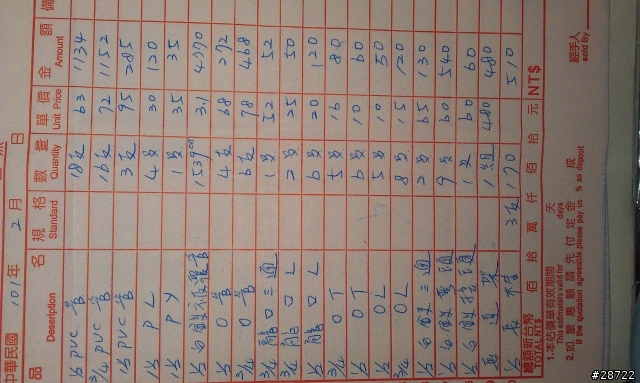 中華民國 101年 2月 日
品名 Description 規格 Standard 數量 Quantity 單價 Unit Price 金額 Amount 備
1/2 PVC 管 18支 63 1134
3/4 PVC 管 16支 72 1152
1½ PVC 管 3支 95 285
1½ PL 4支 30 120
1½ PY 1支 35 35
1/2 白鐵被覆管 1539cm 3.1 4770
1/2 O管 4支 68 272
3/4 O管 6支 78 468
3/4 龍口三通 1支 52 52
3/4 龍口 L 2支 25 50
1/2 龍口 L 6支 20 120
3/4 OT 5支 16 80
1/2 OT 6支 10 60
1/2 OL 5支 10 50
3/4 OL 8支 15 120
1/2 白鐵三通 2支 65 130
1/2 白鐵彎頭 9支 60 540
1/2 白鐵接頭 1支 60 60
1組 480 480
1/2 3支 170 510
總額新台幣 TOTAL NT$ 百 拾 萬 仟 佰 拾 元 NT$
1.本估價單有效期間 天
This estimated valid for days
2.如蒙惠顧請先付定金 成
If the quotation agreeable,please pay us % as deposit
經手人
sold By
#28722